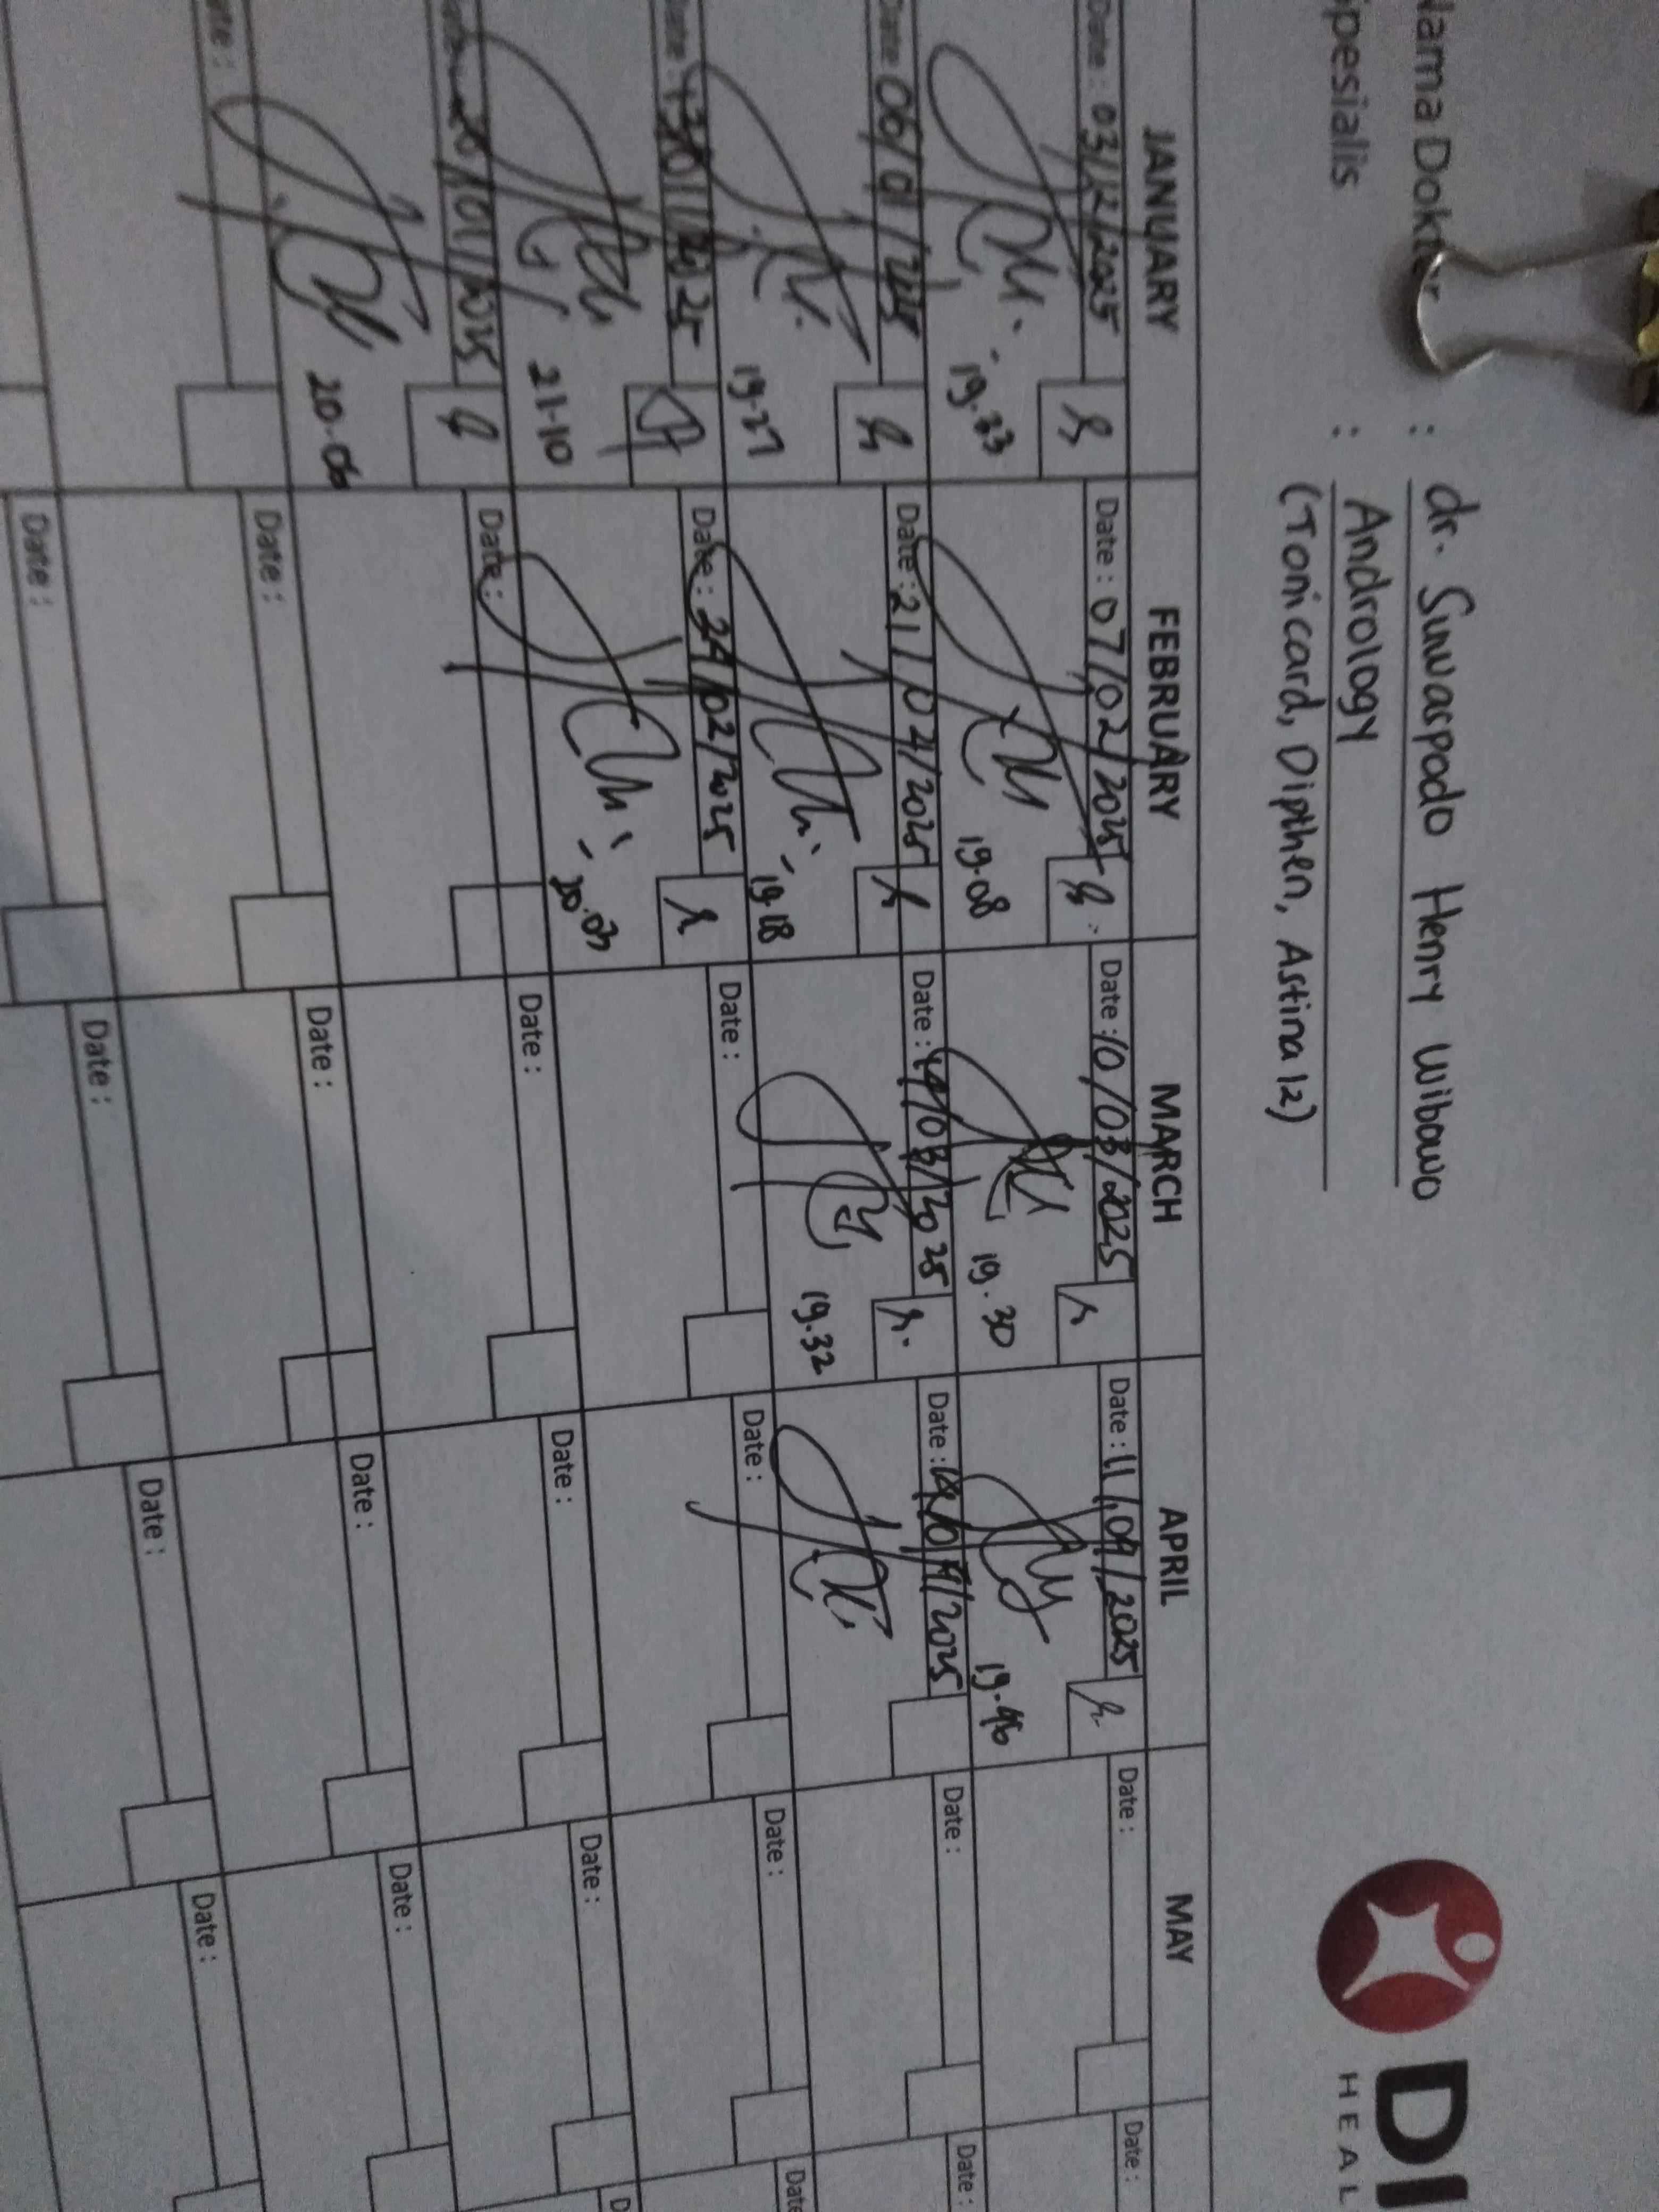 Nama Dokter : dr. Sunwaspodo Henry Wibowo
Spesialis : Andrology
(Tronicard, Dipthen, Astina 12)
DI
HEAL
JANUARY FEBRUARY MARCH APRIL MAY
Date : 03/12/2025 Date : 07/02/2025 Date : 10/03/2025 Date : 11/04/2025 Date : Date :
19.33 19.08 19.30 19.46
Date : 06/01/2025 Date : 21/02/2025 Date : /03/2025 Date : 14/04/2025 Date : Date :
19.27 19.18 19.32
Date : 13/01/2025 Date : 24/02/2025 Date : Date : Date : Date
21.10
20/01/2025 Date : Date : Date : Date : D
20.06
Date : Date : Date : Date : Date :
Date : Date : Date : Date :